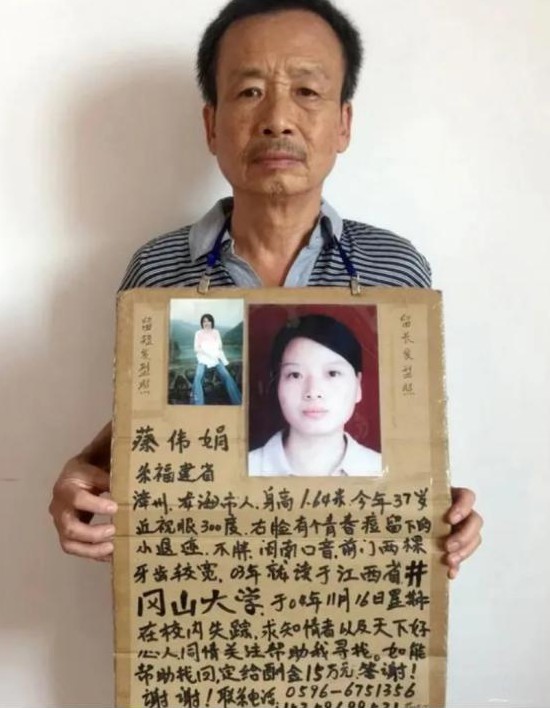 留短发型照
留长发型照
蔡伟娟
系福建省
漳州.龙海市人.身高1.64米.今年37岁
近视眼300度.右脸有个青春痘留下的
小退痣.不胖.闽南口音.前门两棵
牙齿较宽.03年就读于江西省井
冈山大学.于04年11月16日
在校内失踪.求知情者以及天下好
心人同情关注帮助我寻找.如能
帮助找回定给酬金15万元.答谢!
谢谢!联系电话:0596-6751356